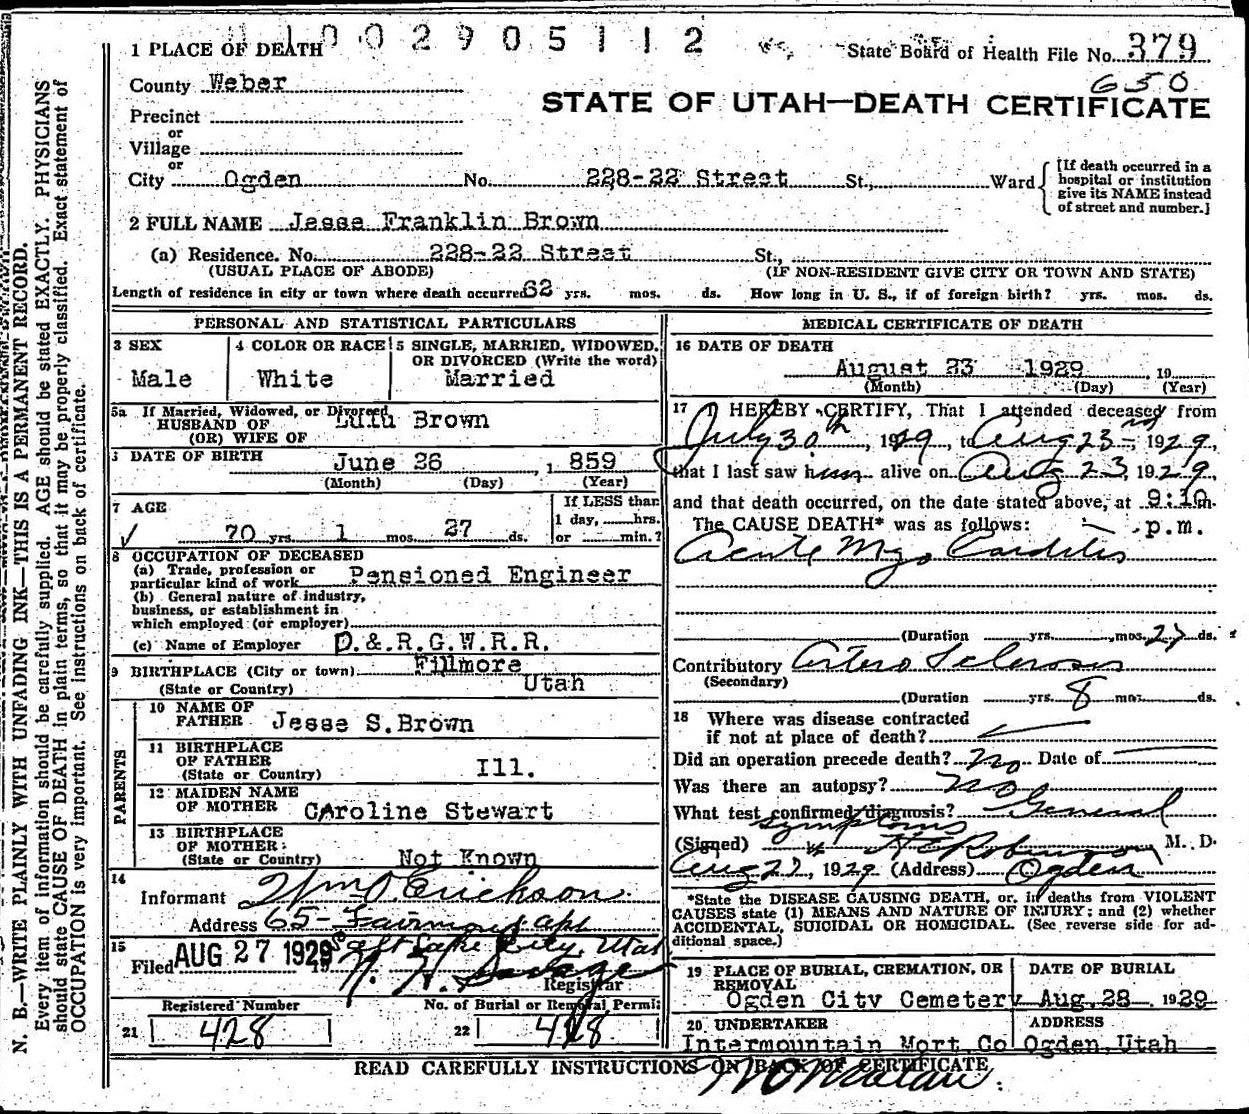 1 0 0 2 9 0 5 1 1 2
1 PLACE OF DEATH
State Board of Health File No. 379
650
County Weber
STATE OF UTAH—DEATH CERTIFICATE
Precinct
or
Village
or
City Ogden No. 228-22 Street St., Ward
[If death occurred in a hospital or institution give its NAME instead of street and number.]
2 FULL NAME Jesse Franklin Brown
(a) Residence. No. 228-22 Street St.,
(USUAL PLACE OF ABODE) (IF NON-RESIDENT GIVE CITY OR TOWN AND STATE)
Length of residence in city or town where death occurred 62 yrs. mos. ds. How long in U. S., if of foreign birth? yrs. mos. ds.
PERSONAL AND STATISTICAL PARTICULARS
3 SEX
Male
4 COLOR OR RACE
White
5 SINGLE, MARRIED, WIDOWED, OR DIVORCED (Write the word)
Married
5a If Married, Widowed, or Divorced
HUSBAND OF
(OR) WIFE OF
Lulu Brown
DATE OF BIRTH June 26, 1859
(Month) (Day) (Year)
7 AGE
70 yrs. 1 mos. 27 ds.
If LESS than
1 day, hrs.
or min.?
8 OCCUPATION OF DECEASED
(a) Trade, profession or
particular kind of work Pensioned Engineer
(b) General nature of industry,
business, or establishment in
which employed (or employer)
(c) Name of Employer D.&.R.G.W.R.R.
9 BIRTHPLACE (City or town) Fillmore
(State or Country) Utah
PARENTS
10 NAME OF
FATHER Jesse S.Brown
11 BIRTHPLACE
OF FATHER
(State or Country) Ill.
12 MAIDEN NAME
OF MOTHER CAroline Stewart
13 BIRTHPLACE
OF MOTHER:
(State or Country) Not Known
14
Informant Wm O. Erickson
Address 65- Fairmount apt
Salt Lake City, Utah
15
Filed AUG 27 1929 19
Savage
Registrar
Registered Number
21 428
No. of Burial or Removal Permit
22 428
MEDICAL CERTIFICATE OF DEATH
16 DATE OF DEATH
August 23 1929, 19
(Month) (Day) (Year)
17 I HEREBY CERTIFY, That I attended deceased from
July 30th, 1929, to Aug 23rd, 1929,
that I last saw him alive on Aug 23, 1929,
and that death occurred, on the date stated above, at 9:10 m.
The CAUSE DEATH* was as follows: -p.m.
Acute Myo Carditis
(Duration yrs. mos. 27 ds.
Contributory Artero Sclerosis
(Secondary)
(Duration yrs. 8 mos. ds.
18 Where was disease contracted
if not at place of death?
Did an operation precede death? No Date of
Was there an autopsy? No
What test confirmed diagnosis? General
symptoms
(Signed) Robinson M. D.
Aug 27, 1929 (Address) Ogden
*State the DISEASE CAUSING DEATH, or, in deaths from VIOLENT
CAUSES state (1) MEANS AND NATURE OF INJURY; and (2) whether
ACCIDENTAL, SUICIDAL OR HOMICIDAL. (See reverse side for ad-
ditional space.)
19 PLACE OF BURIAL, CREMATION, OR
REMOVAL
Ogden City Cemetery
DATE OF BURIAL
Aug. 28, 1929
20 UNDERTAKER
Intermountain Mort.Co
ADDRESS
Ogden, Utah
READ CAREFULLY INSTRUCTIONS ON BACK OF CERTIFICATE
N. B.—WRITE PLAINLY WITH UNFADING INK—THIS IS A PERMANENT RECORD.
Every item of information should be carefully supplied. AGE should be stated EXACTLY. PHYSICIANS
should state CAUSE OF DEATH in plain terms, so that it may be properly classified. Exact statement of
OCCUPATION is very important. See instructions on back of certificate.